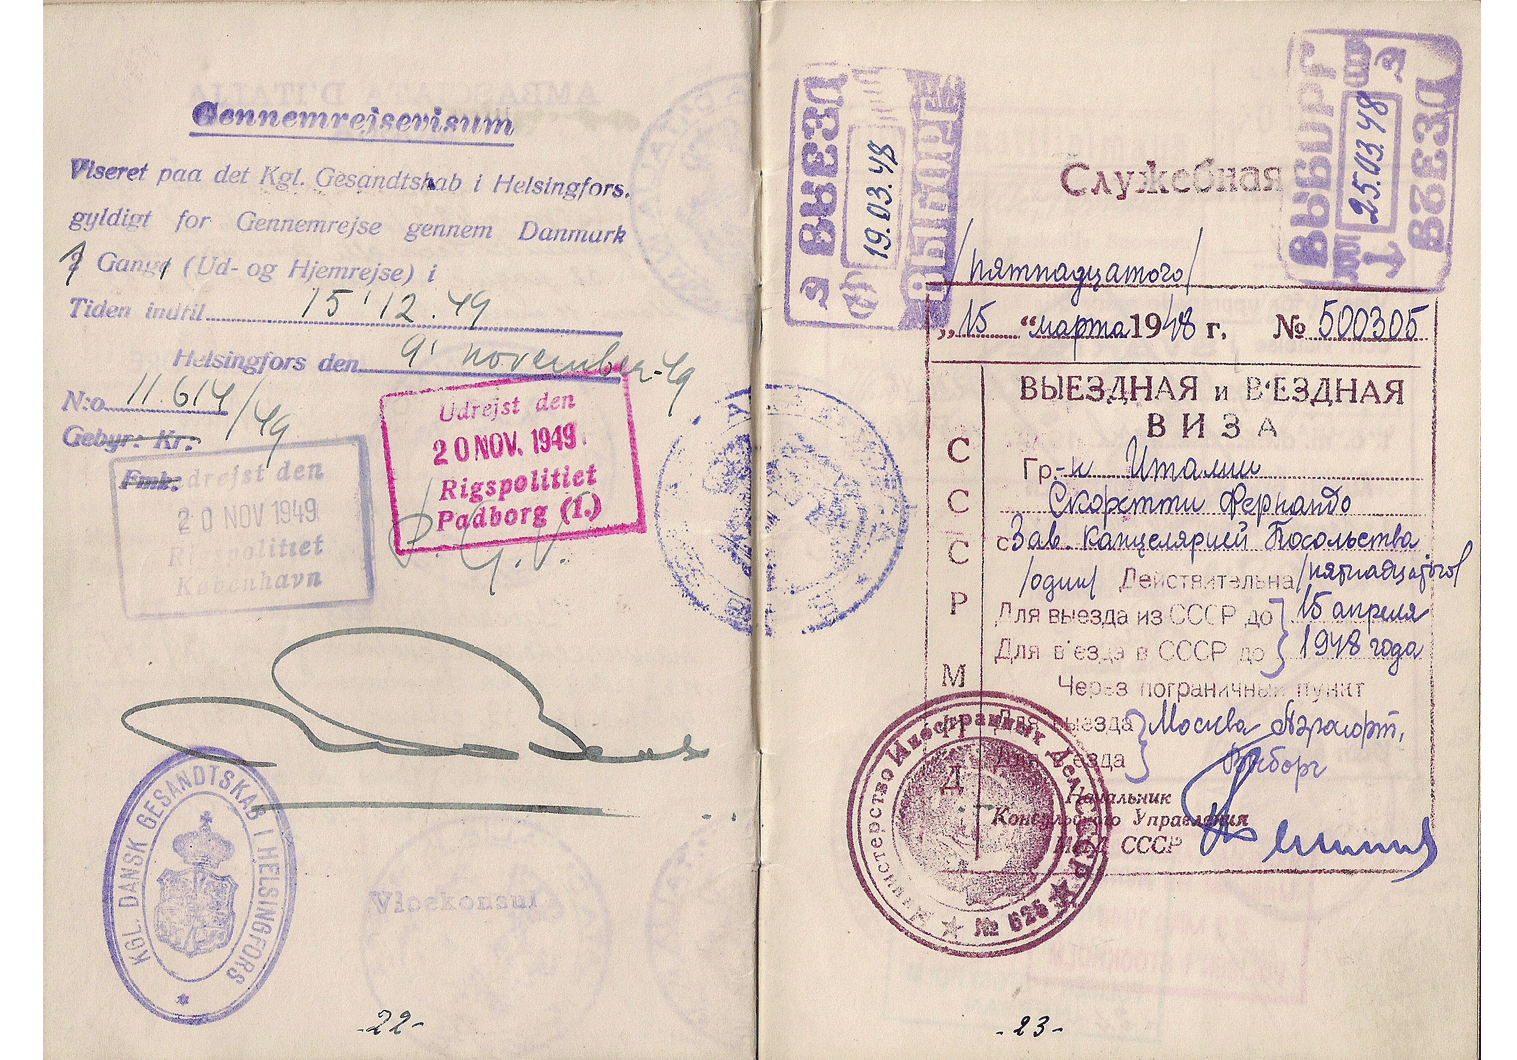 Gennemrejsevisum
Viseret paa det Kgl. Gesandtskab i Helsingfors.
gyldigt for Gennemrejse gennem Danmark
1 Gang (Ud- og Hjemrejse) i
Tiden indtil 15'12.49
Helsingfors den 9' november-49
N:o 11.614/49
Gebyr: Kr:
Fmk:
Udrejst den
20 NOV. 1949
Rigspolitiet
Padborg (T.)
Indrejst den
20 NOV 1949
Rigspolitiet
København
KGL. DANSK GESANDTSKAB I HELSINGFORS
Vicekonsul
-22-
ВЪЕЗД
19.03.48
ВЫБОРГ
ВЫБОРГ
25.03.48
ВЪЕЗД
Служебная
/пятнадцатого/
„15“ марта 1948 г. № 500305
ВЫЕЗДНАЯ и В'ЕЗДНАЯ
ВИЗА
СССР
МИД
Гр-н Италии
Скоретти Фернандо
с Зав. Канцелярией Посольства
/один/ Действительна /пятнадцатого/
Для выезда из СССР до 15 апреля
Для в'езда в СССР до 1948 года
Через пограничный пункт
Для выезда Москва Аэропорт,
Для в'езда Выборг
Начальник
Консульского Управления
МИД СССР
Министерство Иностранных Дел СССР
№ 626
-23-